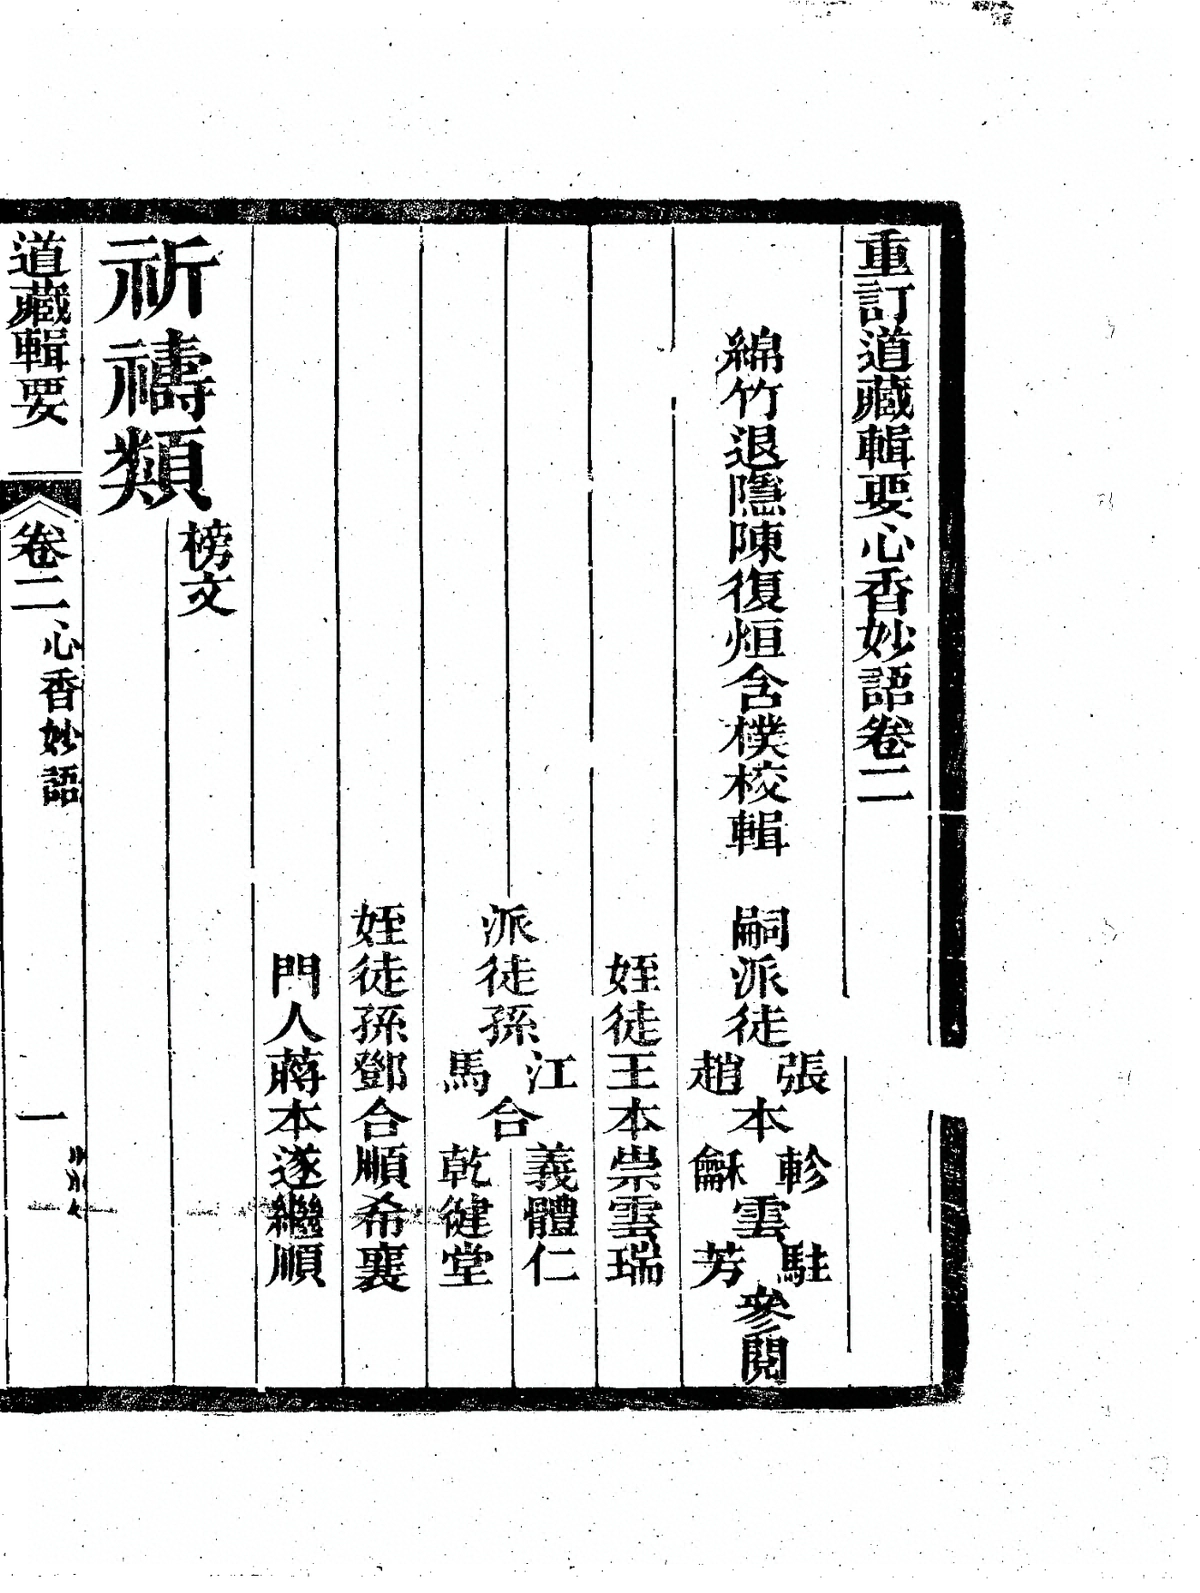 重訂道藏輯要心香妙語卷二
綿竹退隱陳復烜含樸校輯
嗣派徒張趙本軫龢雲駐芳參閱
姪徒王本崇雲瑞
派徒孫江馬合義體仁乾健堂
姪徒孫鄧合順希襄
門人蔣本遂繼順
祈禱類
榜文
道藏輯要
卷二
心香妙語
一